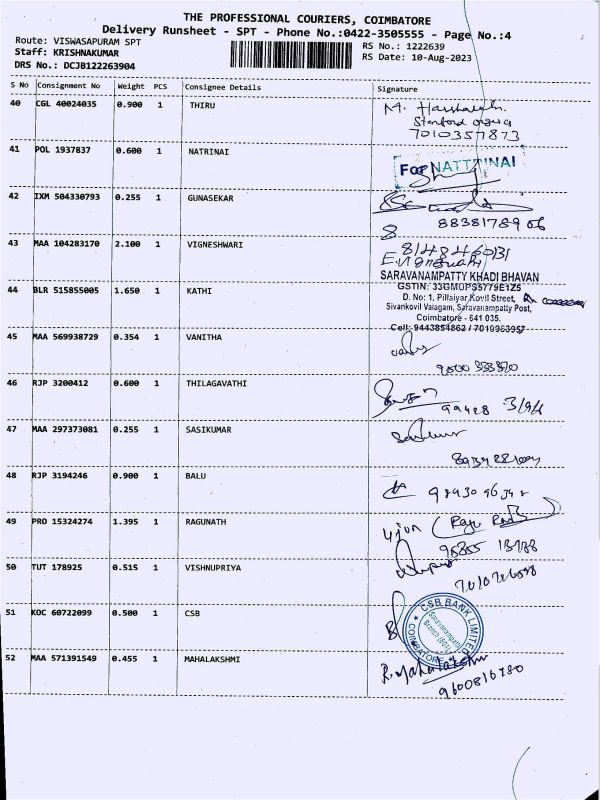 THE PROFESSIONAL COURIERS, COIMBATORE
Delivery Runsheet - SPT - Phone No.:0422-3505555 - Page No.:4
Route: VISWASAPURAM SPT
RS No.: 1222639
Staff: KRISHNAKUMAR
RS Date: 10-Aug-2023
DRS No.: DCJB122263904
S No Consignment No Weight PCS Consignee Details Signature
40 CGL 40024035 0.900 1 THIRU M.
7010357873
41 POL 1937837 0.600 1 NATRINAI For NATTRINAI
42 IXM 504330793 0.255 1 GUNASEKAR
8838178906
43 MAA 104283170 2.100 1 VIGNESHWARI
SARAVANAMPATTY KHADI BHAVAN
44 BLR 515855005 1.650 1 KATHI
D. No: 1, Pillaiyar Kovil Street,
Sivankovil Valagam, Saravanampatty Post,
Coimbatore - 641 035.
Cell: 9443854862 /
45 MAA 569938729 0.354 1 VANITHA
46 RJP 3200412 0.600 1 THILAGAVATHI
47 MAA 297373081 0.255 1 SASIKUMAR
48 RJP 3194246 0.900 1 BALU
49 PRO 15324274 1.395 1 RAGUNATH
50 TUT 178925 0.515 1 VISHNUPRIYA
51 KOC 60722099 0.500 1 CSB
CSB BANK LIMITED
COIMBATORE
52 MAA 571391549 0.455 1 MAHALAKSHMI R. Mahalakshmi